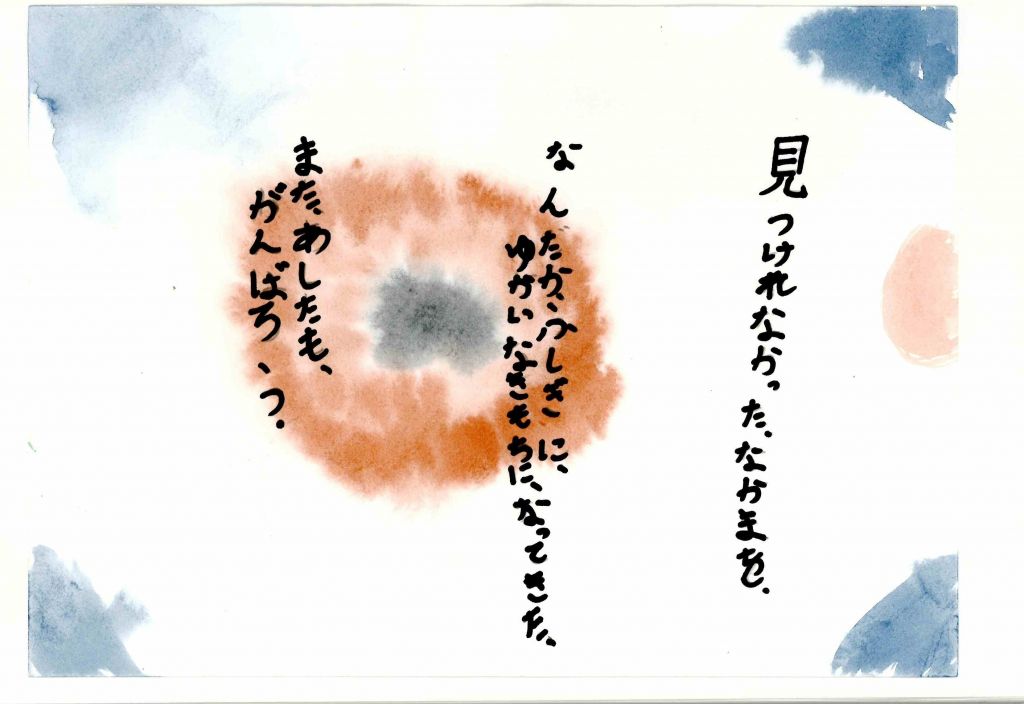 見つけれなかった、なかまを、
なんだか、ふしぎに、
ゆかいなきもちに、なってきた、
また、あしたも、
がんばろ、う。